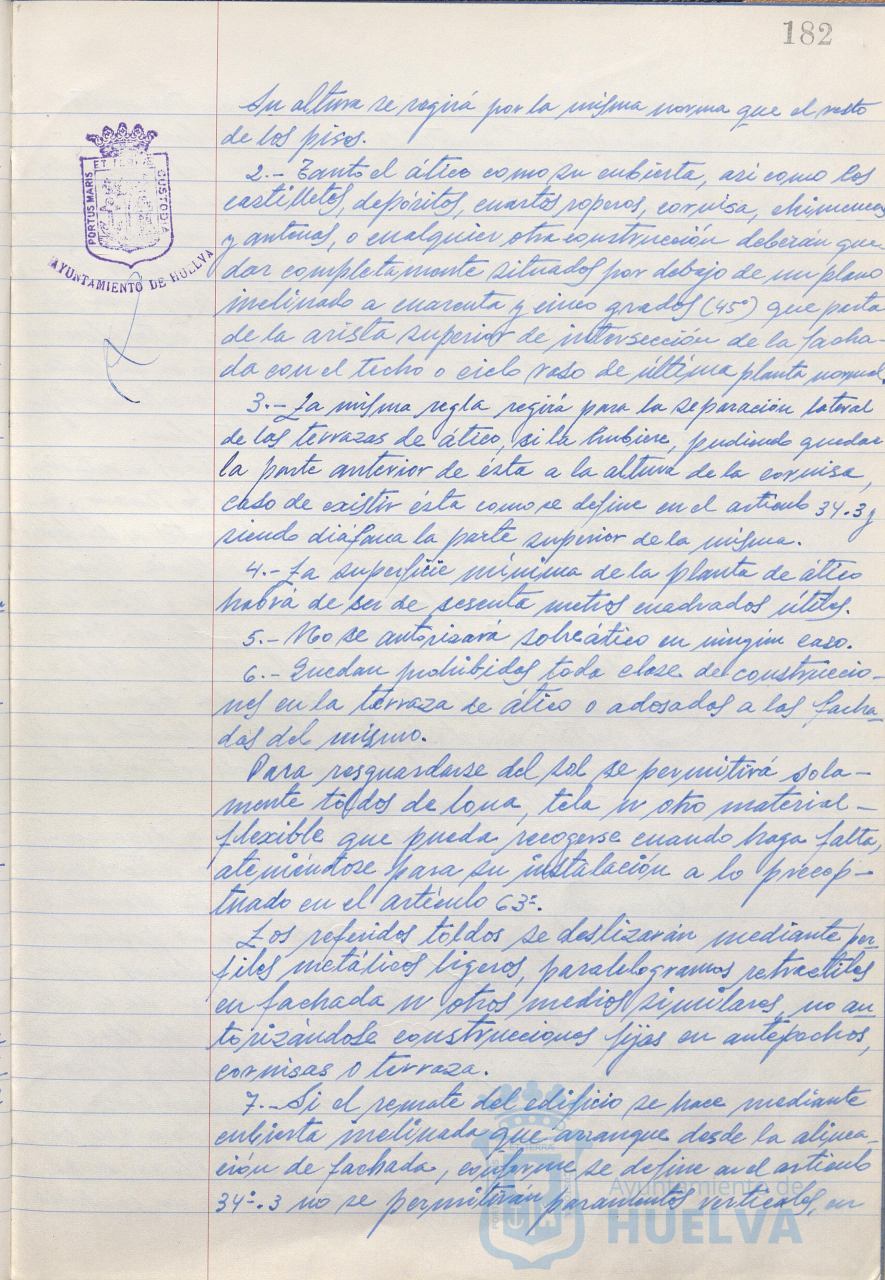 182
Su altura se regirá por la misma norma que el resto
de los pisos.
2.- Tanto el ático como su cubierta, asi como los
castilletes, depósitos, cuartos roperos, cornisa, chimeneas
y antenas, o cualquier otra construcción deberán que-
dar completamente situados por debajo de un plano
inclinado a cuarenta y cinco grados (45º) que parta
de la arista superior de intersección de la facha-
da con el techo o cielo raso de última planta normal.
3.- La misma regla regirá para la separación lateral
de las terrazas de ático, si la hubiere, pudiendo quedar
la parte anterior de ésta a la altura de la cornisa,
caso de existir ésta como se define en el artículo 34.3 y
siendo diáfana la parte superior de la misma.
4.- La superficie mínima de la planta de ático
habrá de ser de sesenta metros cuadrados útiles.
5.- No se autorizará sobreático en ningún caso.
6.- Quedan prohibidos toda clase de construccio-
nes en la terraza de ático o adosados a las facha-
das del mismo.
Para resguardarse del sol se permitirá sola-
mente toldos de lona, tela u otro material
flexible que pueda recogerse cuando haga falta,
ateniéndose para su instalación a lo precep-
tuado en el artículo 63º.
Los referidos toldos se deslizarán mediante per-
files metálicos ligeros, paralelogramos retractiles
en fachada u otros medios similares, no au-
torizándose construcciones fijas en antepechos,
cornisas o terraza.
7.- Si el remate del edificio se hace mediante
cubierta inclinada que arranque desde la alinea-
ción de fachada, conforme se define en el artículo
34º.3 no se permitirán paramentos verticales, en
PORTUS MARIS ET TERRAE CUSTODIA
AYUNTAMIENTO DE HUELVA
Ayuntamiento de
HUELVA